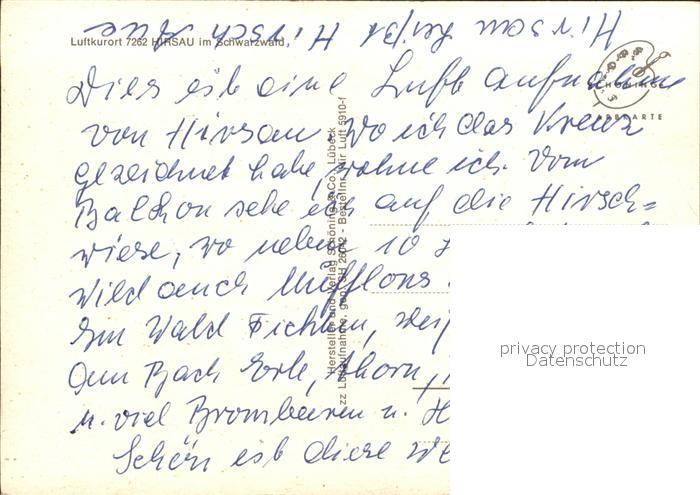 Luftkurort 7262 HIRSAU im Schwarzwald
Hirsau heißt Hirsch Aue
SCHÖNING
FARBKARTE
Dies ist eine Luft Aufnahme
von Hirsau. Wo ich das Kreuz
gezeichnet habe, wohne ich. Vom
Balkon sehe ich auf die Hirsch=
wiese, wo neben 10
Wild auch Mufflons
Im Wald Fichten,
Am Bach Erle, Ahorn,
u. viel Brombeeren u. H
Schön ist diese We
Hersteller und Verlag Schöning & Co., Lübeck
zz Luftaufnahme, gen. SH 26042 - Bestellnr. Hir Luft 5910-f
privacy protection
Datenschutz